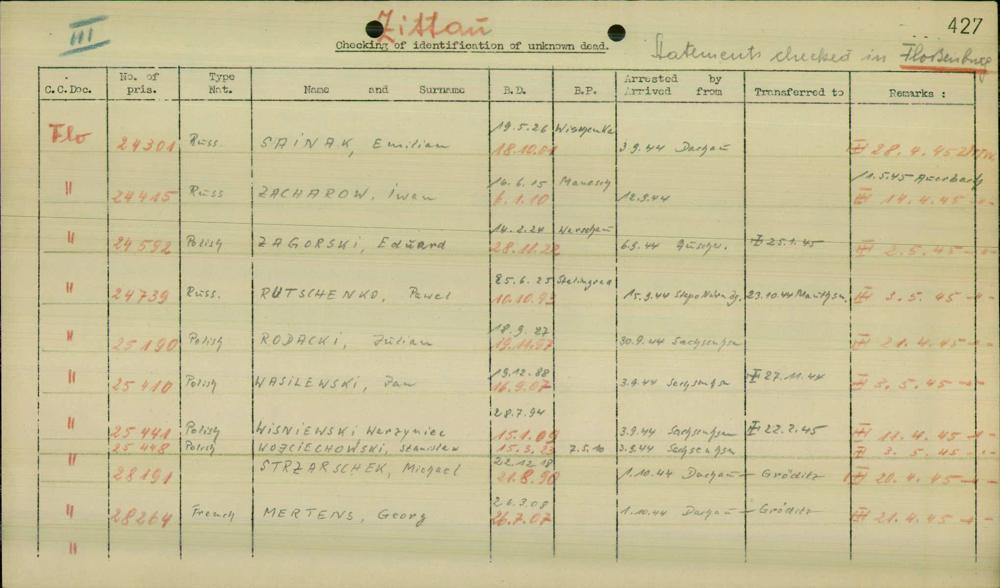 III Zittau 427
Checking of identification of unknown dead.
Statements checked in Flossenbürg
C.C.Doc. No. of pris. Type Nat. Name and Surname B.D. B.P. Arrested by Arrived from Transferred to Remarks :
19.5.26 Wischenka
Flo 24301 Russ. SAINAK, Emilian 18.10.01 3.9.44 Dachau III 28.4.45
16.6.15 11.5.45 Auerbach
" 24415 Russ ZACHAROW, Iwan 6.1.10 12.9.44 III 14.4.45 - " -
14.2.24 Warschau
" 24592 Polish ZAGORSKI, Eduard 28.11.22 6.9.44 Auschw. I 25.1.45 III 2.5.45 - " -
25.6.25 Stalingrad
" 24739 Russ. RUTSCHENKO, Pawel 10.10.93 15.9.44 Stapo Nürnbg. 23.10.44 Mauthsn. III 3.5.45 - " -
18.9.27
" 25190 Polish RODACKI, Julian 19.11.07 30.9.44 Sachsenhsn III 21.4.45 - " -
19.12.88
" 25410 Polish WASILEWSKI, Jan 16.9.07 3.9.44 Sachsenhsn I 27.11.44 III 3.5.45 - " -
28.7.94
" 25441 Polish WISNIEWSKI Warzyniec 15.1.09 3.9.44 Sachsenhsn I 22.2.45 III 11.4.45 - " -
25448 Polish WOJCIECHOWSKI, Stanislaw 15.3.23 7.5.10 3.9.44 Sachsenhsn III 3.5.45 - " -
22.12.18
" 28191 STRZARSCHEK, Michael 21.8.90 1.10.44 Dachau - Gröditz III 20.4.45 - " -
26.3.08
" 28264 French MERTENS, Georg 26.7.07 1.10.44 Dachau - Gröditz III 21.4.45 - " -
"